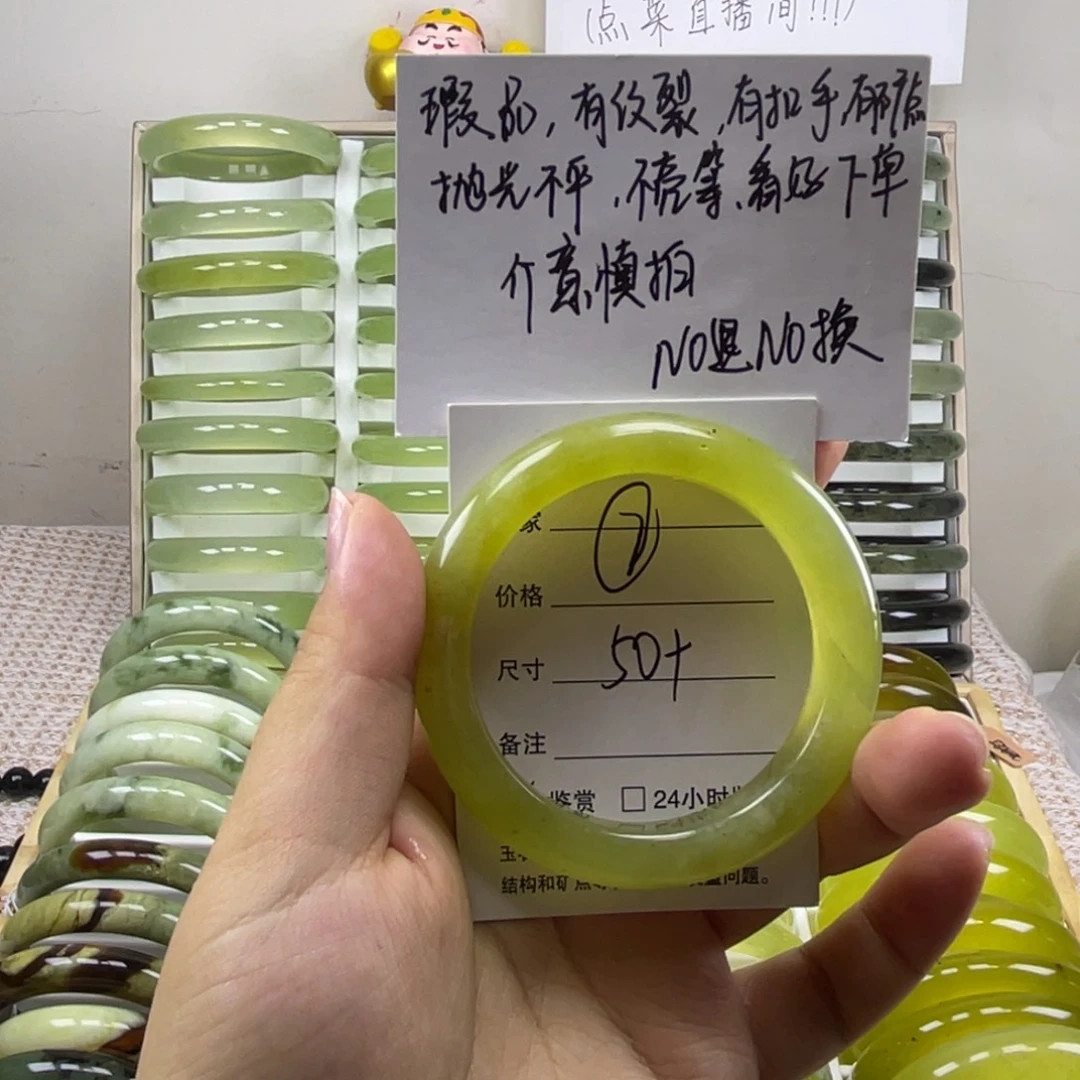 (点菜直播间!!!)
瑕品,有纹裂,有扣手,有矿点
抛光不平,不亮等,看好下单
介意慎拍
NO退NO换
家
价格
尺寸 50+
备注
鉴赏 □ 24小时
结构和矿点 问题。